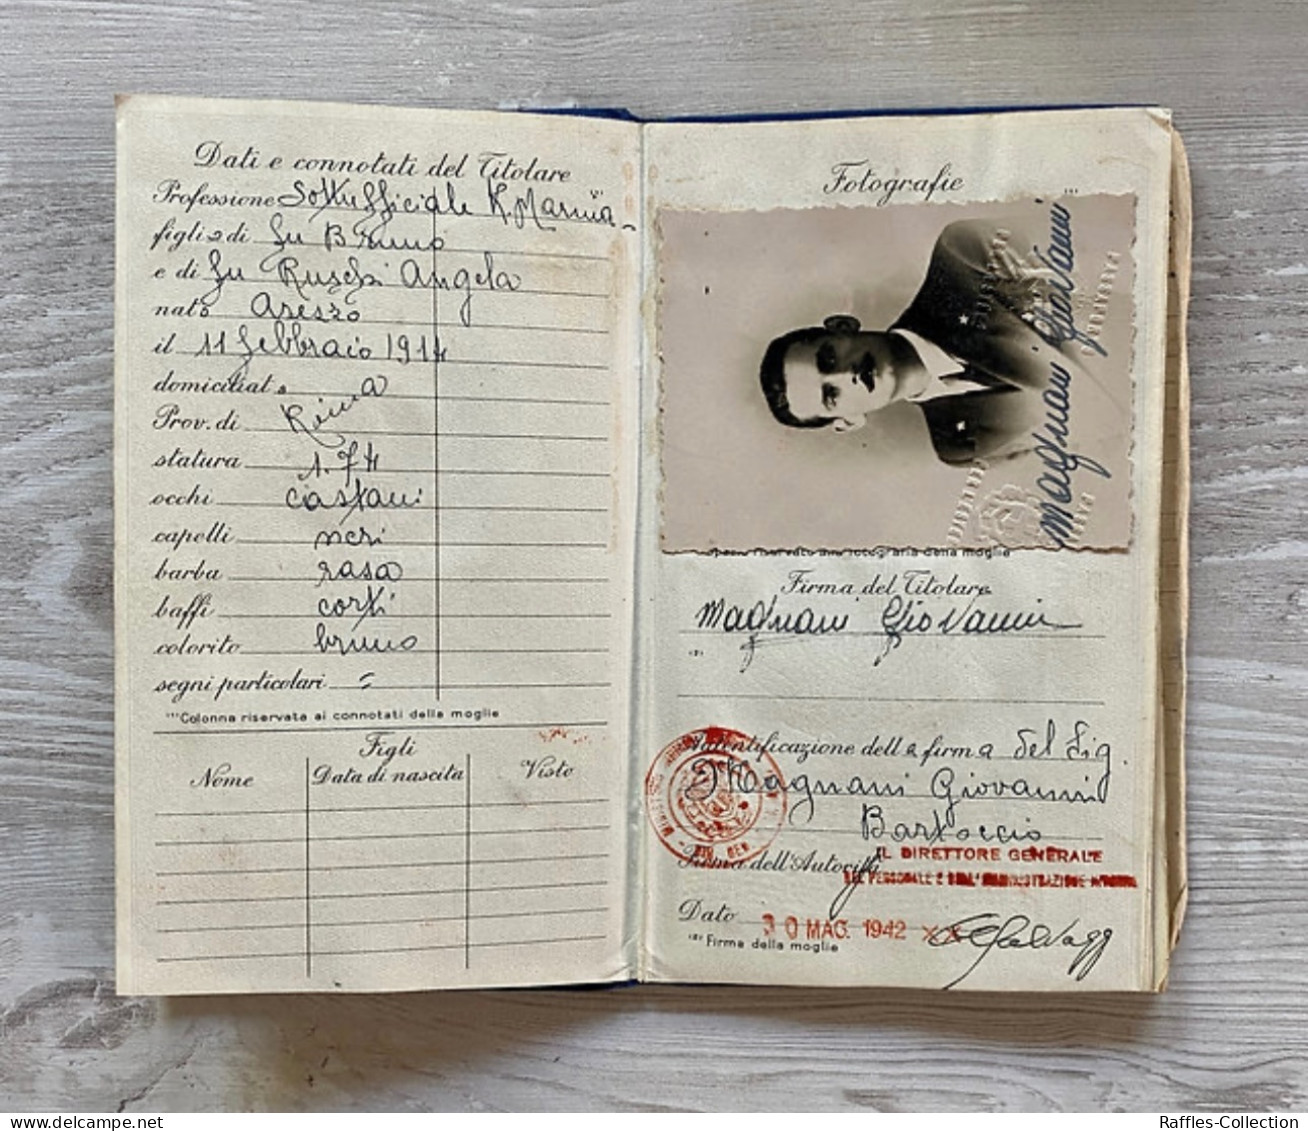 Dati e connotati del Titolare
Professione Sottufficiale R. Marina
figlio di fu Bruno
e di fu Ruschi Angela
nato Arezzo
il 11 febbraio 1914
domiciliato Roma
Prov. di
statura 1.74
occhi castani
capelli neri
barba rasa
baffi corti
colorito bruno
segni particolari =
Colonna riservata ai connotati della moglie
Figli
Nome Data di nascita Visto
Fotografie
Magnani Giovanni
spazio riservato alla fotografia della moglie
Firma del Titolare
Magnani Giovanni
Autentificazione della firma del Sig.
Magnani Giovanni
Bartoccio
Firma dell'Autorità IL DIRETTORE GENERALE
DEL PERSONALE E DELL'AMMINISTRAZIONE INTERNA
Dato 30 MAG. 1942 XX
(2) Firma della moglie
Raffles-Collection